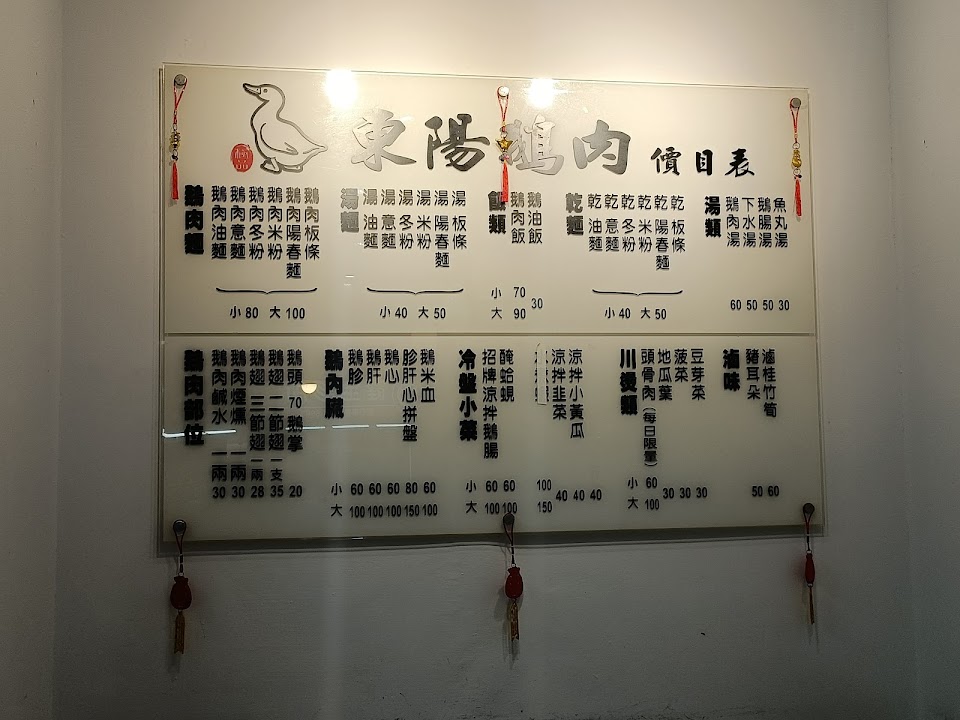 東陽鵝肉 價目表
鵝肉麵
鵝肉油麵
鵝肉意麵
鵝肉冬粉
鵝肉米粉
鵝肉陽春麵
鵝肉板條
小80 大100
湯麵
湯油麵
湯意麵
湯冬粉
湯米粉
湯陽春麵
湯板條
小40 大50
飯類
鵝肉飯 小70 大90
鵝油飯 30
乾麵
乾油麵
乾意麵
乾冬粉
乾米粉
乾陽春麵
乾板條
小40 大50
湯類
鵝肉湯 60
下水湯 50
鵝腸湯 50
魚丸湯 30
鵝肉部位
鵝肉鹹水 一兩 30
鵝肉煙燻 一兩 30
鵝翅 三節翅 一兩 28
鵝翅 二節翅 一支 35
鵝頭 70 鵝掌 20
鵝內臟
鵝胗 小60 大100
鵝肝 60 100
鵝心 60 100
胗肝心拼盤 80 150
鵝米血 60 100
冷盤小菜
招牌涼拌鵝腸 小60 大100
醃蛤蜆 60 100
100 150
涼拌韭菜 40
涼拌小黃瓜 40
40
川燙類
頭骨肉(每日限量) 小60 大100
地瓜葉 30
菠菜 30
豆芽菜 30
滷味
豬耳朵 50
滷桂竹筍 60